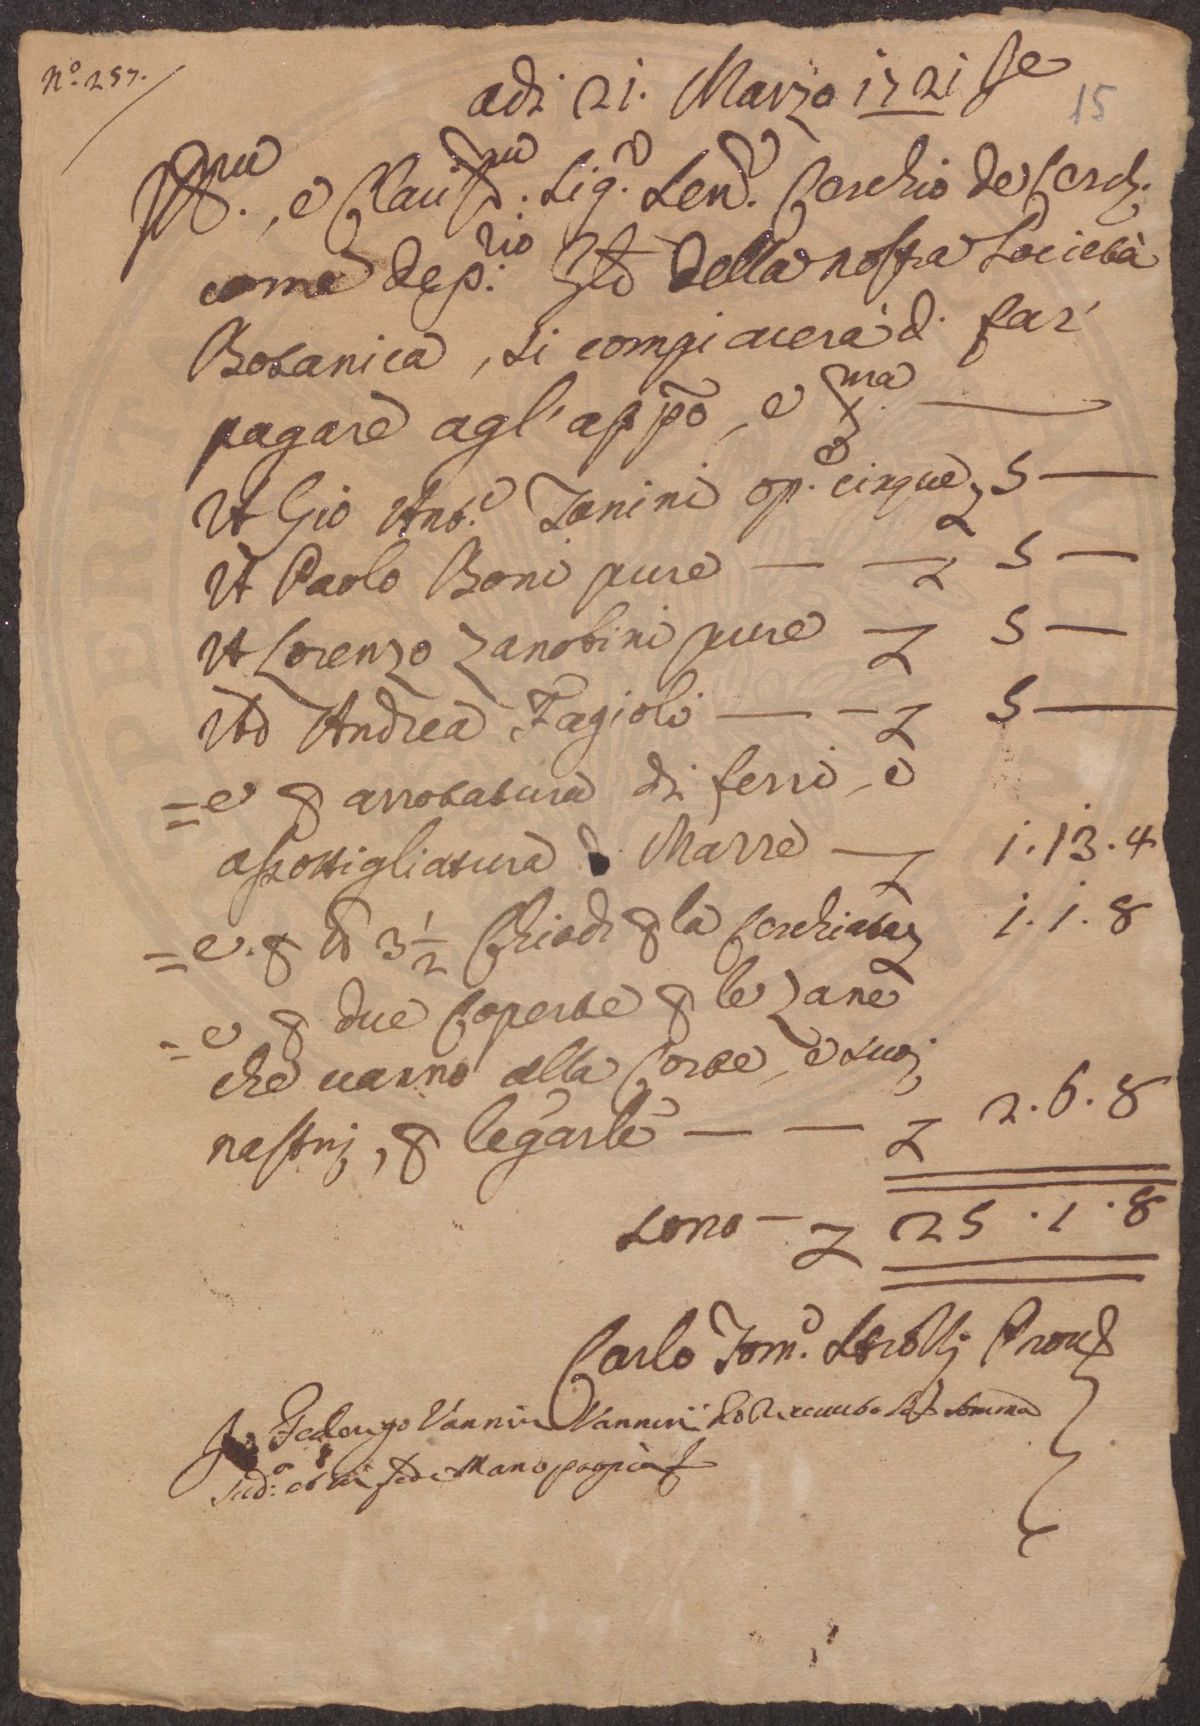 N.º 257.
adi 21. Marzo 1721
15
Ill.mo, e Clariss.mo Sig.e Sen.e Cerchio de Cerch.
come dep.rio della nostra Società
Botanica, si compiacerà d. far'
pagare agl'appō, e
A Gio Ant.o Tonini op.e cinque £ 5 —
A Paolo Boni pure — — £ 5 —
A Lorenzo Zanobini pure — £ 5 —
Ad Andrea Fagioli — — £ 5 —
= e p arrotatura di ferri, e
assottigliatura d Marre — £ 1.13.4
= e p lb 3 1/2 Chiodi p la Cerchiata £ 1.1.8
= e p due Coperte p le zane
che vanno alla Corte, e suoi
nastrij, p legarle — — £ 2.6.8
sono — £ 25.1.8
Carlo Tom.o
Io Federigo Vannini somma
Sud.a Mano propria